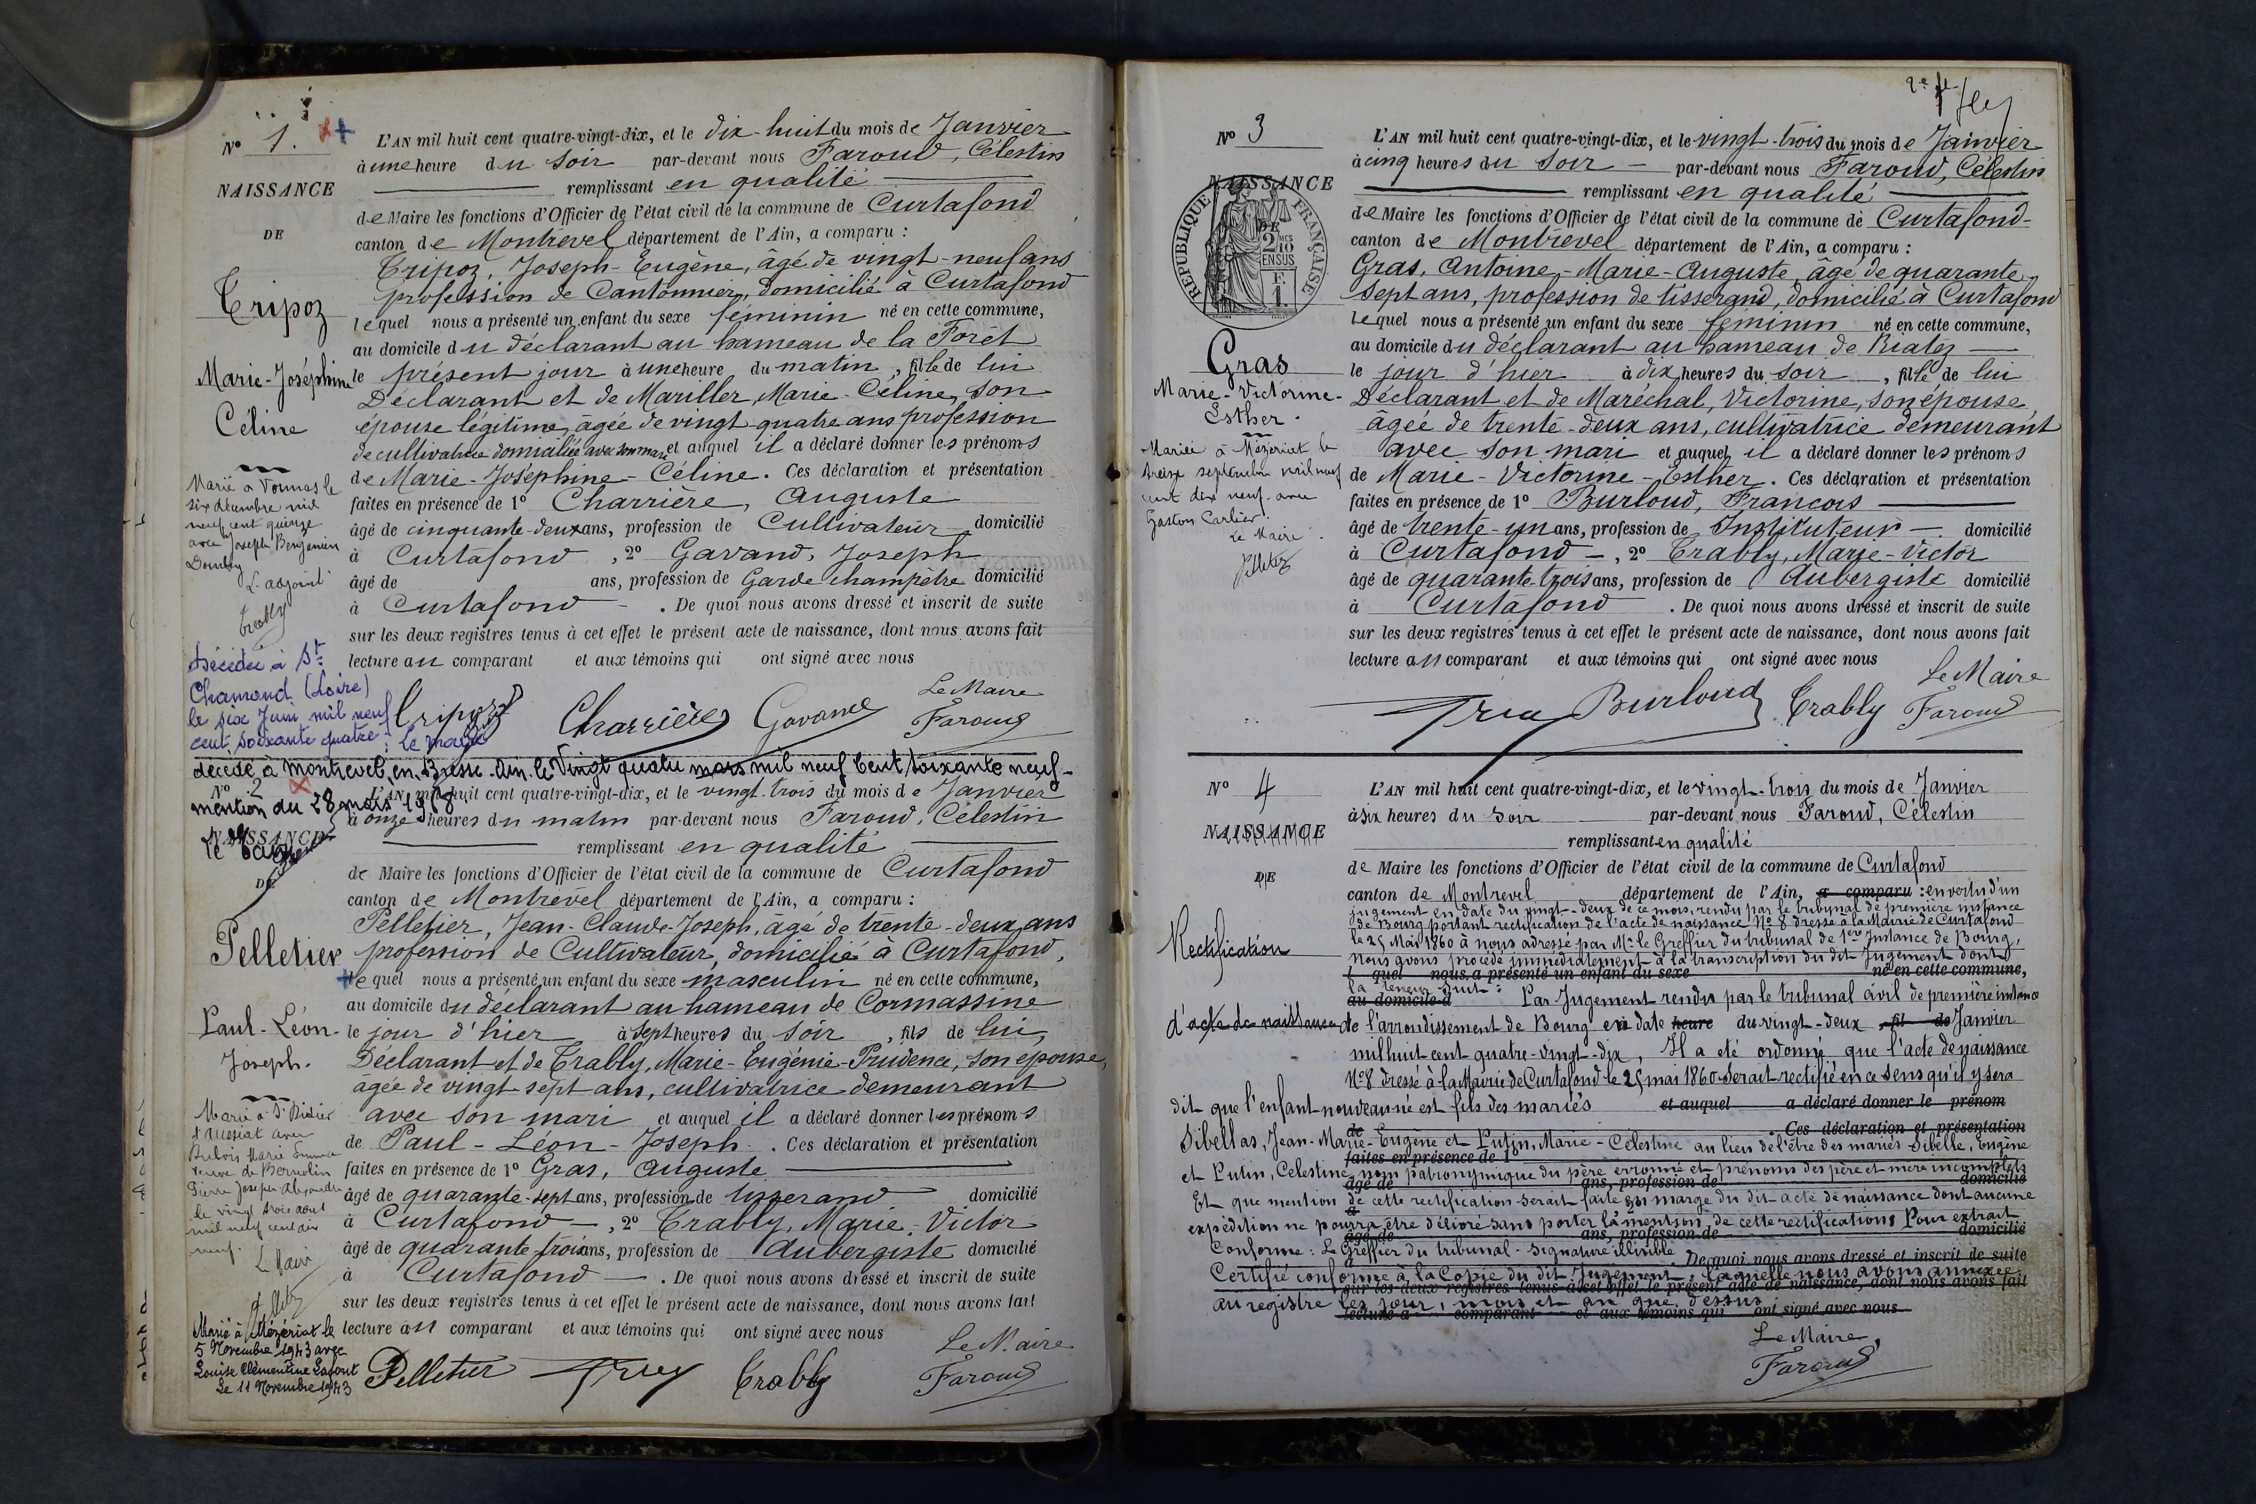 Nº 1.
NAISSANCE
DE
Tripoz
Marie-Joséphine
Céline
Marié à Vonnas le
six décembre mil
neuf cent quinze
avec Joseph Benjamin
L'adjoint
Trably
Décédée à St
Chamond (Loire)
le six Juin mil neuf
cent soixante quatre : le maire
L'AN mil huit cent quatre-vingt-dix, et le dix-huit du mois de Janvier
à une heure du soir par-devant nous Faroud, Célestin
remplissant en qualité
de Maire les fonctions d'Officier de l'état civil de la commune de Curtafond
canton de Montrevel département de l'Ain, a comparu :
Tripoz, Joseph-Eugène, âgé de vingt-neuf ans
profession de Cantonnier, domicilié à Curtafond
lequel nous a présenté un enfant du sexe féminin né en cette commune,
au domicile du déclarant au hameau de la Forêt
le présent jour à une heure du matin, fille de lui
Déclarant et de Mariller, Marie-Céline, son
épouse légitime, âgée de vingt-quatre ans profession
de cultivatrice domiciliée avec son mari et auquel il a déclaré donner les prénoms
de Marie-Joséphine-Céline. Ces déclaration et présentation
faites en présence de 1º Charrière, Auguste
âgé de cinquante-deux ans, profession de Cultivateur domicilié
à Curtafond, 2º Gavand, Joseph
âgé de ans, profession de Garde champêtre domicilié
à Curtafond. De quoi nous avons dressé et inscrit de suite
sur les deux registres tenus à cet effet le présent acte de naissance, dont nous avons fait
lecture au comparant et aux témoins qui ont signé avec nous
Le Maire
Tripoz Charrière Gavand Faroud
décédé à Montrevel en Bresse - Ain - le Vingt quatre mars mil neuf cent soixante neuf -
mention du 28 mars
le
Nº 2
NAISSANCE
DE
Pelletier
Paul-Léon-
Joseph.
Marié à St Didier
d'Aussiat avec
Dubois Marie
veuve de
Pierre Joseph Alexandre
le vingt trois août
mil neuf cent dix
neuf.
Le Maire
Marié à Mézériat le
5 Novembre 1943 avec
Louise Clémentine Lafont
Le 11 Novembre 1943
L'AN mil huit cent quatre-vingt-dix, et le vingt-trois du mois de Janvier
à onze heures du matin par-devant nous Faroud, Célestin
remplissant en qualité
de Maire les fonctions d'Officier de l'état civil de la commune de Curtafond
canton de Montrevel département de l'Ain, a comparu :
Pelletier, Jean-Claude-Joseph, âgé de trente-deux ans
profession de Cultivateur, domicilié à Curtafond,
lequel nous a présenté un enfant du sexe masculin né en cette commune,
au domicile du déclarant au hameau de Cormassine
le jour d'hier à sept heures du soir, fils de lui,
Déclarant et de Trably, Marie-Eugénie-Prudence, son épouse,
âgée de vingt-sept ans, cultivatrice demeurant
avec son mari et auquel il a déclaré donner les prénoms
de Paul-Léon-Joseph. Ces déclaration et présentation
faites en présence de 1º Gras, Auguste
âgé de quarante-sept ans, profession de tisserand domicilié
à Curtafond, 2º Trably, Marie-Victor
âgé de quarante-trois ans, profession de Aubergiste domicilié
à Curtafond. De quoi nous avons dressé et inscrit de suite
sur les deux registres tenus à cet effet le présent acte de naissance, dont nous avons fait
lecture au comparant et aux témoins qui ont signé avec nous
Le Maire
Pelletier Trably Faroud
2e
Nº 3
NAISSANCE
DE
RÉPUBLIQUE FRANÇAISE
2 10 MES
EN SUS
F. 1
Gras
Marie-Victorine-
Esther.
Mariée à Mézériat le
treize septembre mil neuf
cent dix neuf avec
Gaston Carlier.
Le Maire
Pelletier
L'AN mil huit cent quatre-vingt-dix, et le vingt-trois du mois de Janvier
à cinq heures du soir par-devant nous Faroud, Célestin
remplissant en qualité
de Maire les fonctions d'Officier de l'état civil de la commune de Curtafond
canton de Montrevel département de l'Ain, a comparu :
Gras, Antoine-Marie-Auguste, âgé de quarante-
sept ans, profession de tisserand, domicilié à Curtafond
lequel nous a présenté un enfant du sexe féminin né en cette commune,
au domicile du déclarant au hameau de Biatez
le jour d'hier à dix heures du soir, fille de lui
Déclarant et de Maréchal, Victorine, son épouse,
âgée de trente-deux ans, cultivatrice demeurant
avec son mari et auquel il a déclaré donner les prénoms
de Marie-Victorine-Esther. Ces déclaration et présentation
faites en présence de 1º Burloud, François
âgé de trente-un ans, profession de Instituteur domicilié
à Curtafond, 2º Trably, Marie-Victor
âgé de quarante-trois ans, profession de Aubergiste domicilié
à Curtafond. De quoi nous avons dressé et inscrit de suite
sur les deux registres tenus à cet effet le présent acte de naissance, dont nous avons fait
lecture au comparant et aux témoins qui ont signé avec nous
Le Maire
Burloud Trably Faroud
Nº 4
NAISSANCE
DE
Rectification
d'acte de naissance
L'AN mil huit cent quatre-vingt-dix, et le vingt-trois du mois de Janvier
à six heures du soir par-devant nous Faroud, Célestin
remplissant en qualité
de Maire les fonctions d'Officier de l'état civil de la commune de Curtafond
canton de Montrevel département de l'Ain, a comparu : en vertu d'un
jugement en date du vingt-deux de ce mois, rendu par le tribunal de première instance
de Bourg portant rectification de l'acte de naissance Nº 8 dressé à la Mairie de Curtafond
le 25 Mai 1860 à nous adressé par Mr le Greffier du tribunal de 1ère Instance de Bourg,
nous avons procédé immédiatement à la transcription du dit Jugement dont
l quel nous a présenté un enfant du sexe né en cette commune,
la teneur suit :
au domicile d Par Jugement rendu par le tribunal civil de première instance
de l'arrondissement de Bourg en date heure du vingt-deux fil de Janvier
mil huit cent quatre-vingt-dix, Il a été ordonné que l'acte de naissance
Nº 8 dressé à la Mairie de Curtafond le 25 mai 1860 serait rectifié en ce sens qu'il y sera
dit que l'enfant nouveau né est fils des mariés et auquel a déclaré donner le prénom
de . Ces déclaration et présentation
Sibellas, Jean-Marie-Eugène et Putin, Marie-Célestine au lieu de l'être des mariés Sibelle, Eugène
faites en présence de 1º
et Putin, Célestine, nom patronymique du père erronné et prénoms des père et mère incomplets
âgé de ans, profession de domicilié
Et que mention de cette rectification serait faite en marge du dit acte de naissance dont aucune
à
expédition ne pourra être délivré sans porter la mention de cette rectification. Pour extrait
âgé de ans, profession de domicilié
Conforme : Le Greffier du tribunal - Signature illisible
à . De quoi nous avons dressé et inscrit de suite
Certifié conforme à la Copie du dit Jugement, laquelle nous avons annexée
sur les deux registres tenus à cet effet le présent acte de naissance, dont nous avons fait
au registre les jour, mois et an que dessus
lecture à comparant et aux témoins qui ont signé avec nous
Le Maire,
Faroud